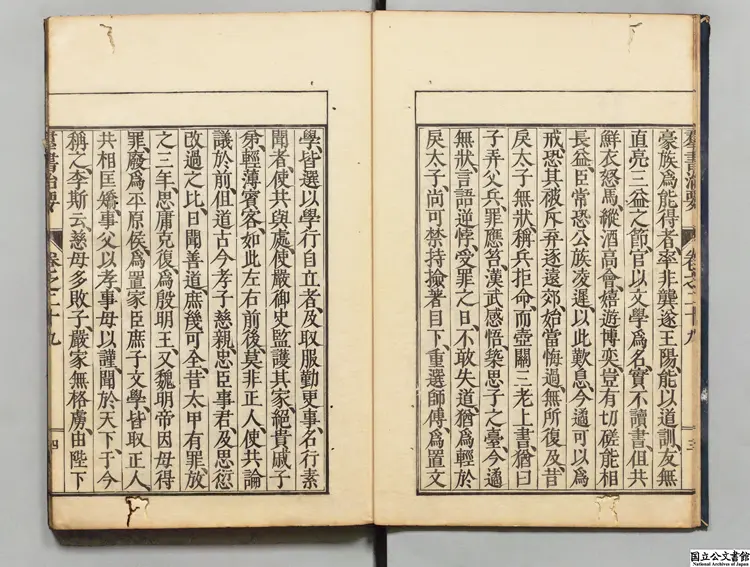 羣書治要 卷之二十九 三
豪族爲能得者率非龔遂王陽能以道訓友無
直亮三益之節官以文學爲名實不讀書但共
鮮衣怒馬縱酒高會嬉遊博奕豈有切磋能相
長益臣常恐公族凌遲以此歎息今遹可以爲
戒恐其破斥弃逐遠郊始當悔過無所復及昔
戾太子無狀稱兵拒命而壺關三老上書猶曰
子弄父兵罪應笞漢武感悟築思子之臺今遹
無狀言語逆悖受罪之日不敢失道猶爲輕於
戾太子尚可禁持撿著目下重選師傅爲置文
學皆選以學行自立者及取服勤更事名行素
聞者使共與處使嚴御史監護其家絕貴戚子
弟輕薄賓客如此左右前後莫非正人使共論
議於前但道古今孝子慈親忠臣事君及思愆
改過之比日聞善道庶幾可全昔太甲有罪放
之三年思庸克復爲殷明王又魏明帝因母得
罪廢爲平原侯爲置家臣庶子文學皆取正人
共相匡矯事父以孝事母以謹聞於天下于今
稱之李斯云慈母多敗子嚴家無格虜由陛下
羣書治要 卷之二十九 四
国立公文書館
National Archives of Japan